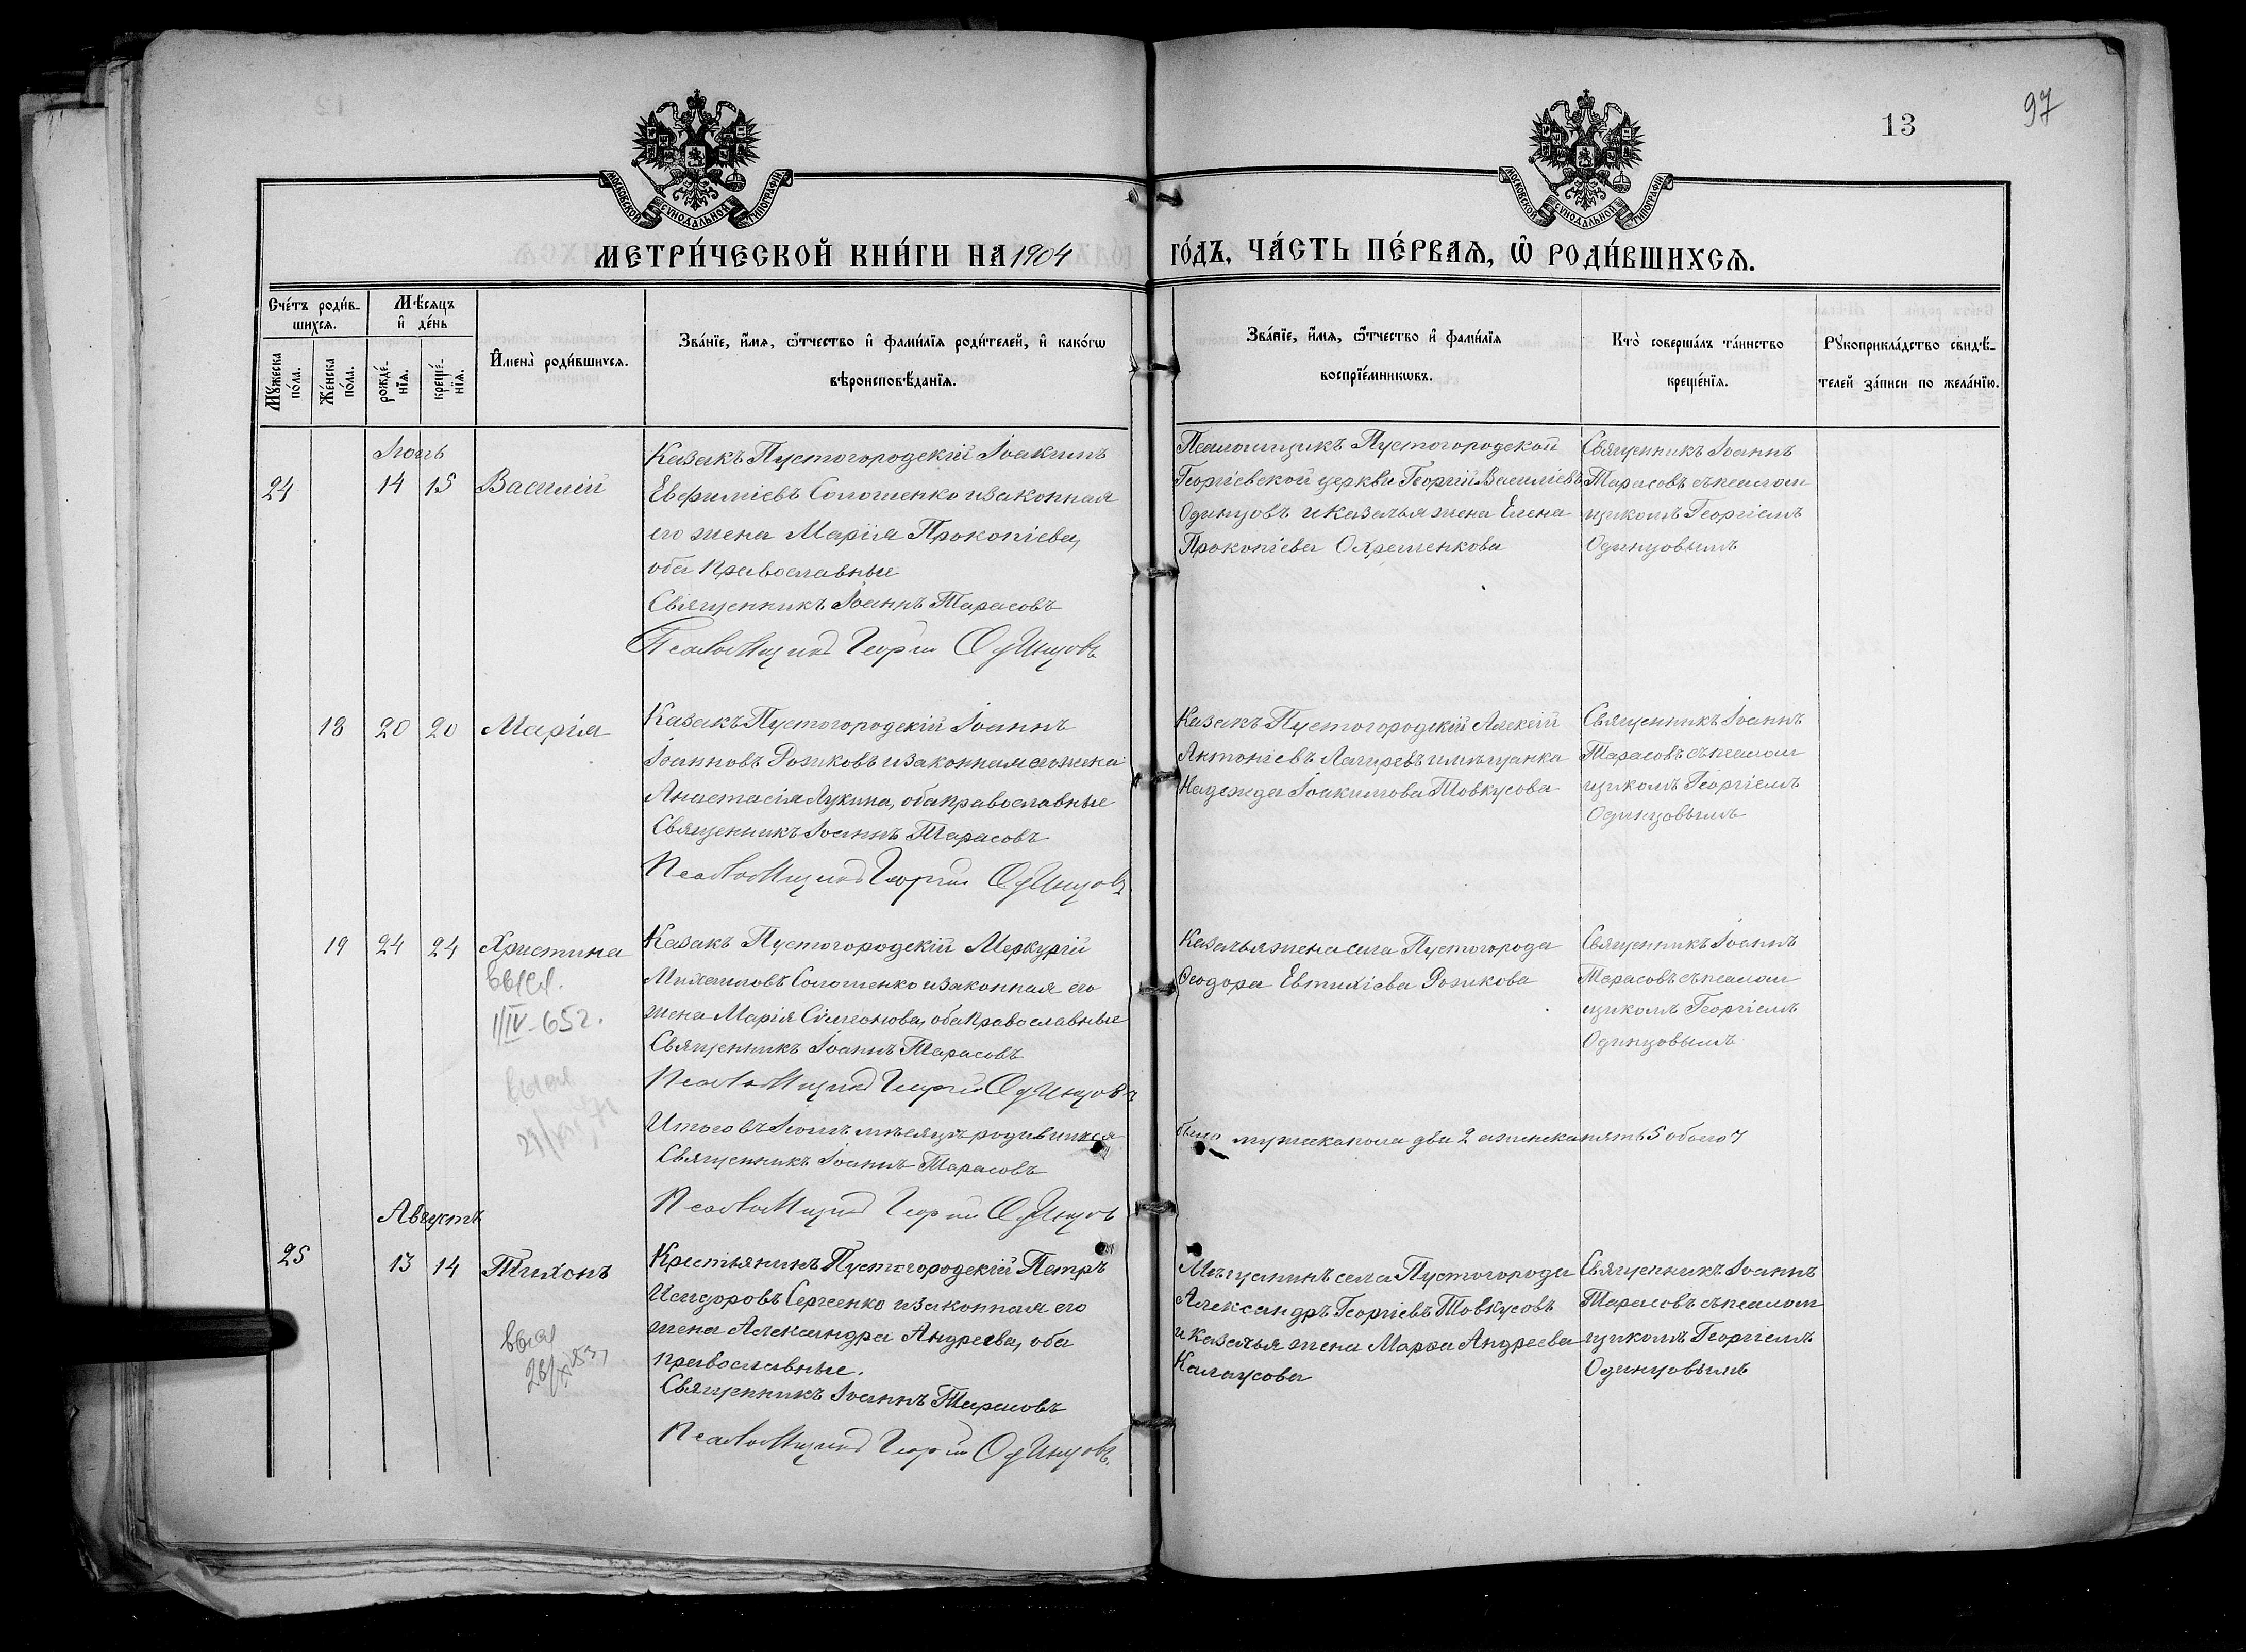 13
97
МОСКОВСКОЙ СѴНОДАЛЬНОЙ ТИПОГРАФІИ
МОСКОВСКОЙ СѴНОДАЛЬНОЙ ТИПОГРАФІИ
МЕТРИ́ЧЕСКОЙ КНИ́ГИ НА 1904 ГО́ДЪ, ЧА́СТЬ ПЕ́РВАѦ, Ѽ РОДИ́ВШИХСѦ.
Сче́тъ роди́в-
шихсѧ.
Мꙋжеска по́ла.
Же́нска по́ла.
Мѣ́сѧцъ
и҆ де́нь
рожде́-
нїѧ.
креще́-
нїѧ.
И҆мена̀ роди́вшихсѧ.
Зва́нїе, и҆́мѧ, ѻ҆́тчество и҆ фами́лїѧ роди́телей, и҆ како́гѡ
вѣроисповѣ́данїѧ.
Зва́нїе, и҆́мѧ, ѻ҆́тчество и҆ фами́лїѧ
воспрїе́мникѡвъ.
Кто̀ соверша́лъ та́инство
креще́нїѧ.
Рꙋкоприкла́дство свидѣ́-
телей за́писи по жела́нїю.
24
14 15 Василій
Казакъ Пустогородскій Іоакимъ
Евфиміевъ Солошенко и законная
его жена Марія Прокопіева,
оба православные
Священникъ Іоаннъ Тарасовъ
Псаломщикъ Георгій Одинцовъ
Псаломщикъ Пустогородской
Георгіевской церкви Георгій Василіевъ
Одинцовъ и казачья жена Елена
Прокопіева Охременкова
Священникъ Іоаннъ
Тарасовъ съ псалом
щикомъ Георгіемъ
Одинцовымъ
18 20 20 Марія
Казакъ Пустогородскій Іоаннъ
Іоанновъ Рожковъ и законная его жена
Анастасія Лукина, оба православные
Священникъ Іоаннъ Тарасовъ
Псаломщикъ Георгій Одинцовъ
Казакъ Пустогородскій Алексій
Антоніевъ и мѣщанка
Надежда Іоакимова Товкусова
Священникъ Іоаннъ
Тарасовъ съ псалом
щикомъ Георгіемъ
Одинцовымъ
19 24 24 Христина
высл.
1/IV-65г.
Казакъ Пустогородскій Меркурій
Михаиловъ Солошенко и законная его
жена Марія Сѵмеонова, оба православные
Священникъ Іоаннъ Тарасовъ
Псаломщикъ Георгій Одинцовъ
Казачья жена села Пустогорода
Ѳеодора Евтихіева Рожкова
Священникъ Іоаннъ
Тарасовъ съ псалом
щикомъ Георгіемъ
Одинцовымъ
Итого въ мѣсяцѣ родившихся было мужска пола два 2 а женска пять 5 обоего 7
Священникъ Іоаннъ Тарасовъ
Псаломщикъ Георгій Одинцовъ
Августъ
25
13 14 Тихонъ
Крестьянинъ Пустогородскій Петръ
Исидоровъ Сергеенко и законная его
жена Александра Андреева, оба
православные.
Священникъ Іоаннъ Тарасовъ
Псаломщикъ Георгій Одинцовъ.
Мѣщанинъ села Пустогорода
Александръ Георгіевъ Товкусовъ
и казачья жена Марѳа Андреева
Калаусова
Священникъ Іоаннъ
Тарасовъ съ псалом
щикомъ Георгіемъ
Одинцовымъ